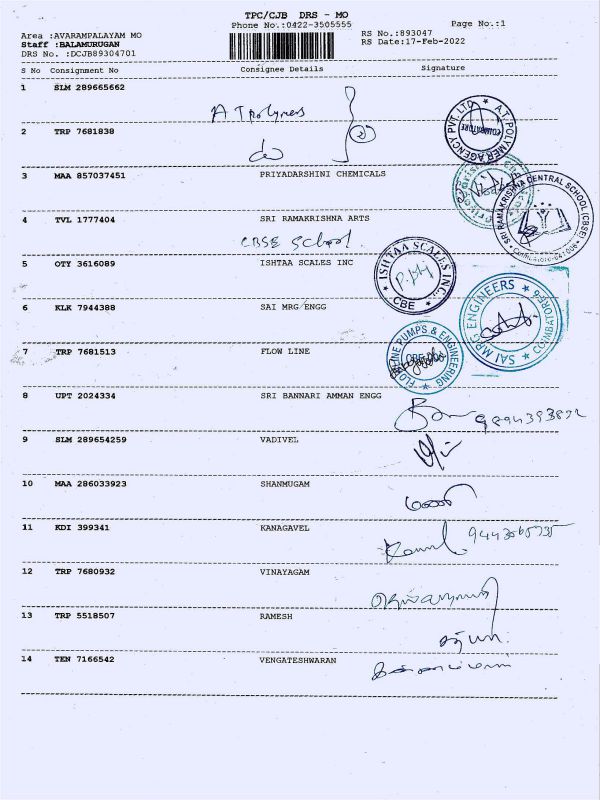 TPC/CJB DRS - MO
Phone No.:0422-3505555
Page No.:1
Area :AVARAMPALAYAM MO
Staff :BALAMURUGAN
DRS No. :DCJB89304701
RS No.:893047
RS Date:17-Feb-2022
S No Consignment No Consignee Details Signature
1 SLM 289665662
A T polymers
2 TRP 7681838
3 MAA 857037451 PRIYADARSHINI CHEMICALS
4 TVL 1777404 SRI RAMAKRISHNA ARTS
CBSE School.
5 OTY 3616089 ISHTAA SCALES INC
6 KLK 7944388 SAI MRG ENGG
7 TRP 7681513 FLOW LINE
8 UPT 2024334 SRI BANNARI AMMAN ENGG
9 SLM 289654259 VADIVEL
10 MAA 286033923 SHANMUGAM
11 KDI 399341 KANAGAVEL
12 TRP 7680932 VINAYAGAM
13 TRP 5518507 RAMESH
14 TEN 7166542 VENGATESHWARAN
A.T.POLYMER AGENCY PVT. LTD.
COIMBATORE
SRI RAMAKRISHNA CENTRAL SCHOOL (CBSE)
ISHTAA SCALES INC.
CBE
SAI MRG ENGINEERS
FLOWLINE PUMPS & ENGINEERING